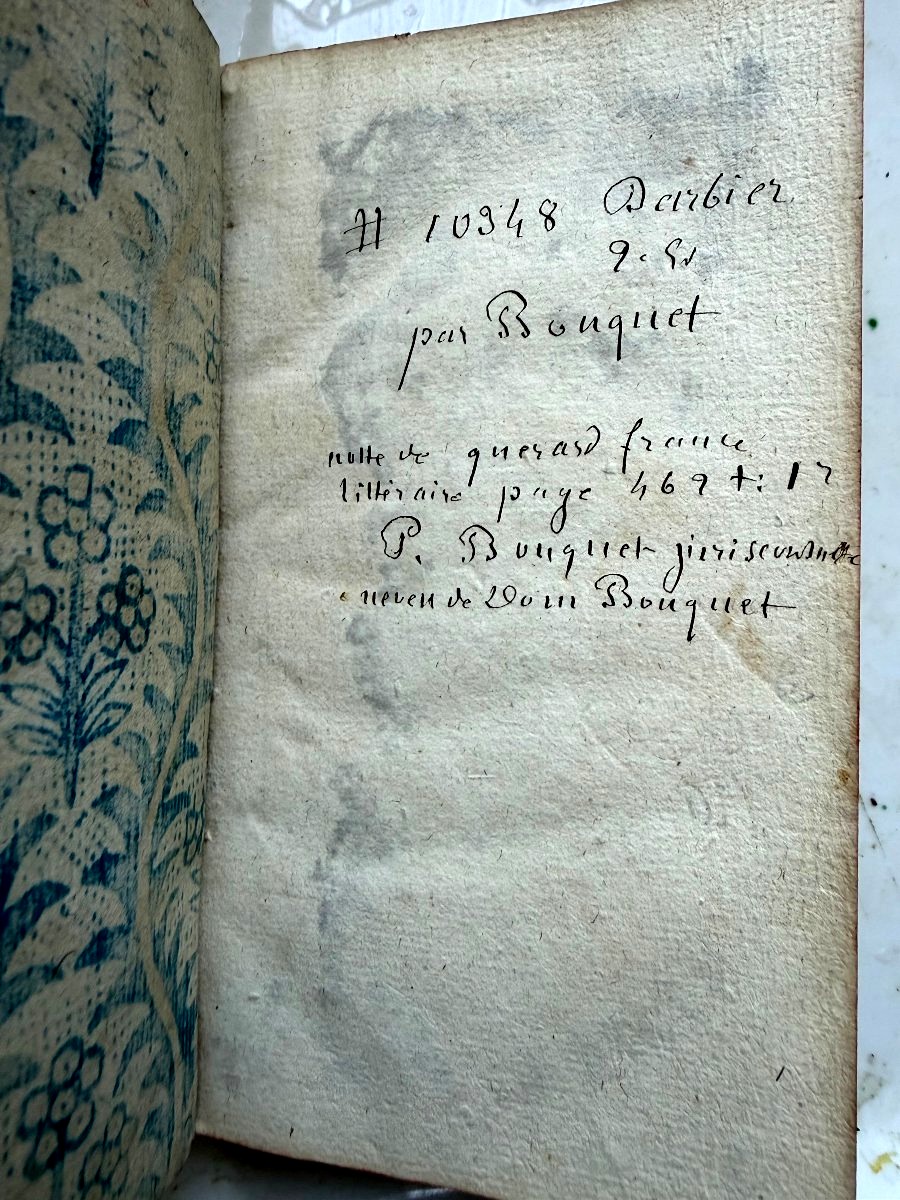 # 10948 Barbier
par Bouquet
notte de querard france
littéraire page 469 t:
P. Bouquet jurisconsulte
neveu de Dom Bouquet